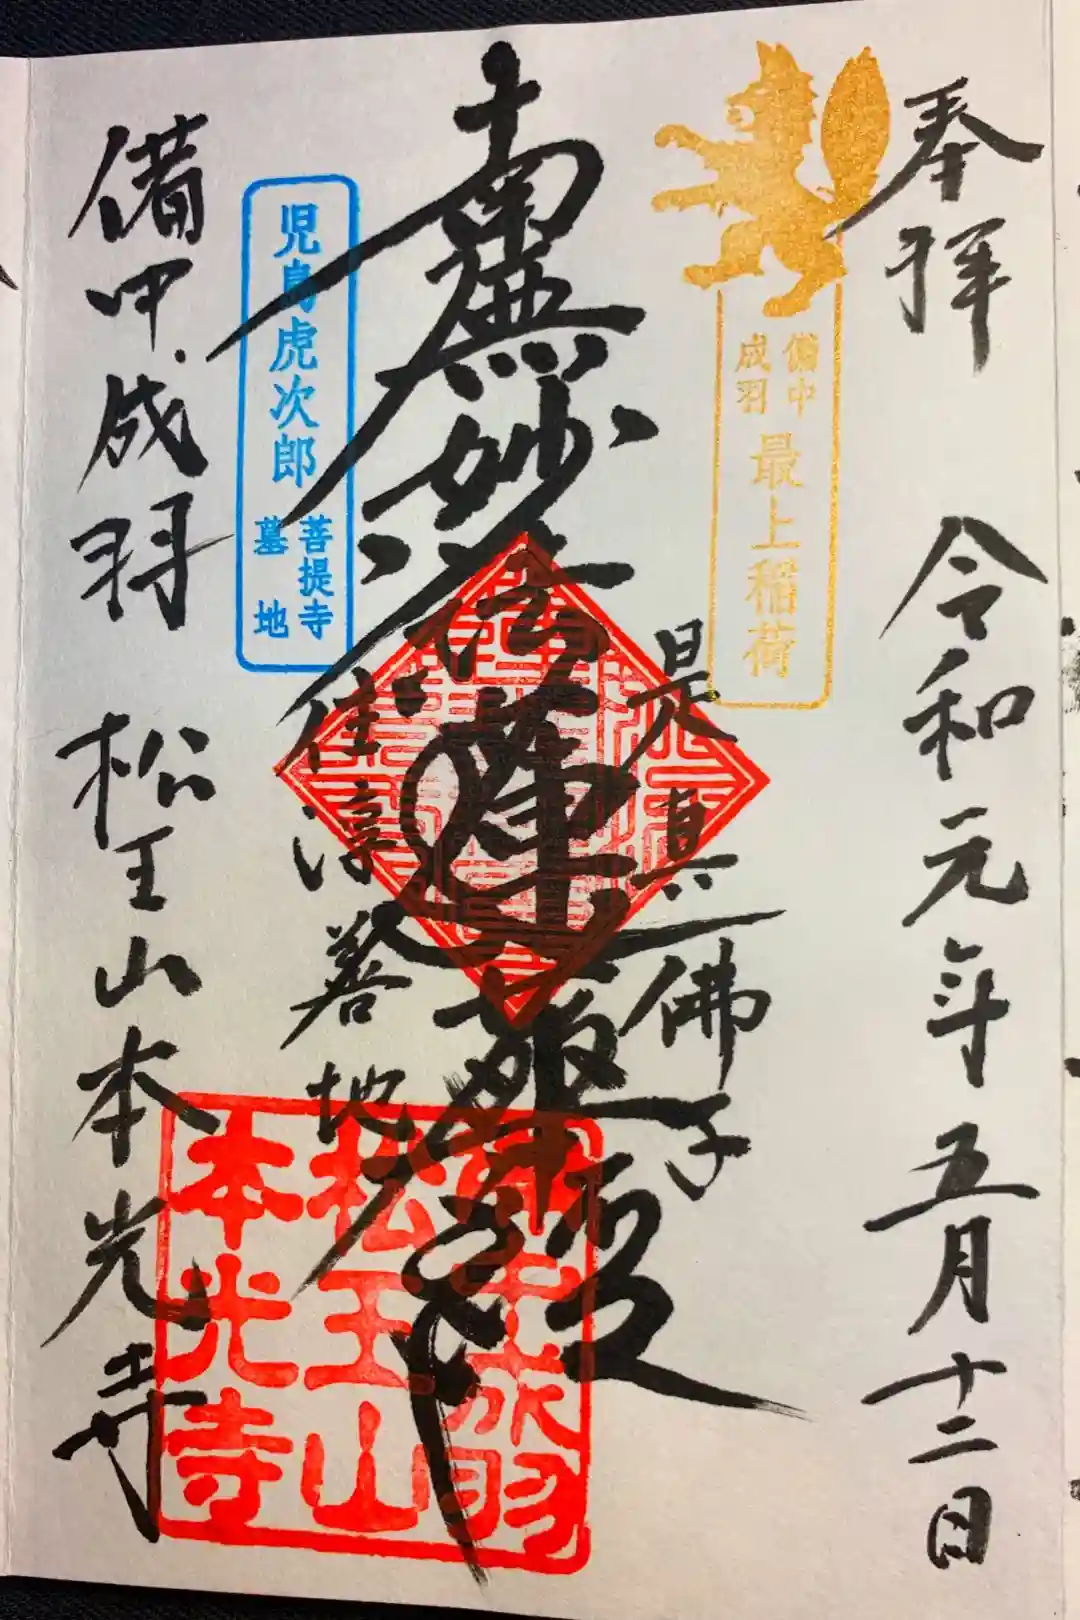 奉拝　令和元年五月十二日
備中
成羽
最上稲荷
是真佛子
南無妙法蓮華経
住淳善地
児島虎次郎
菩提寺
墓地
備中成羽
松王山
本光寺
備中・成羽　松王山本光寺